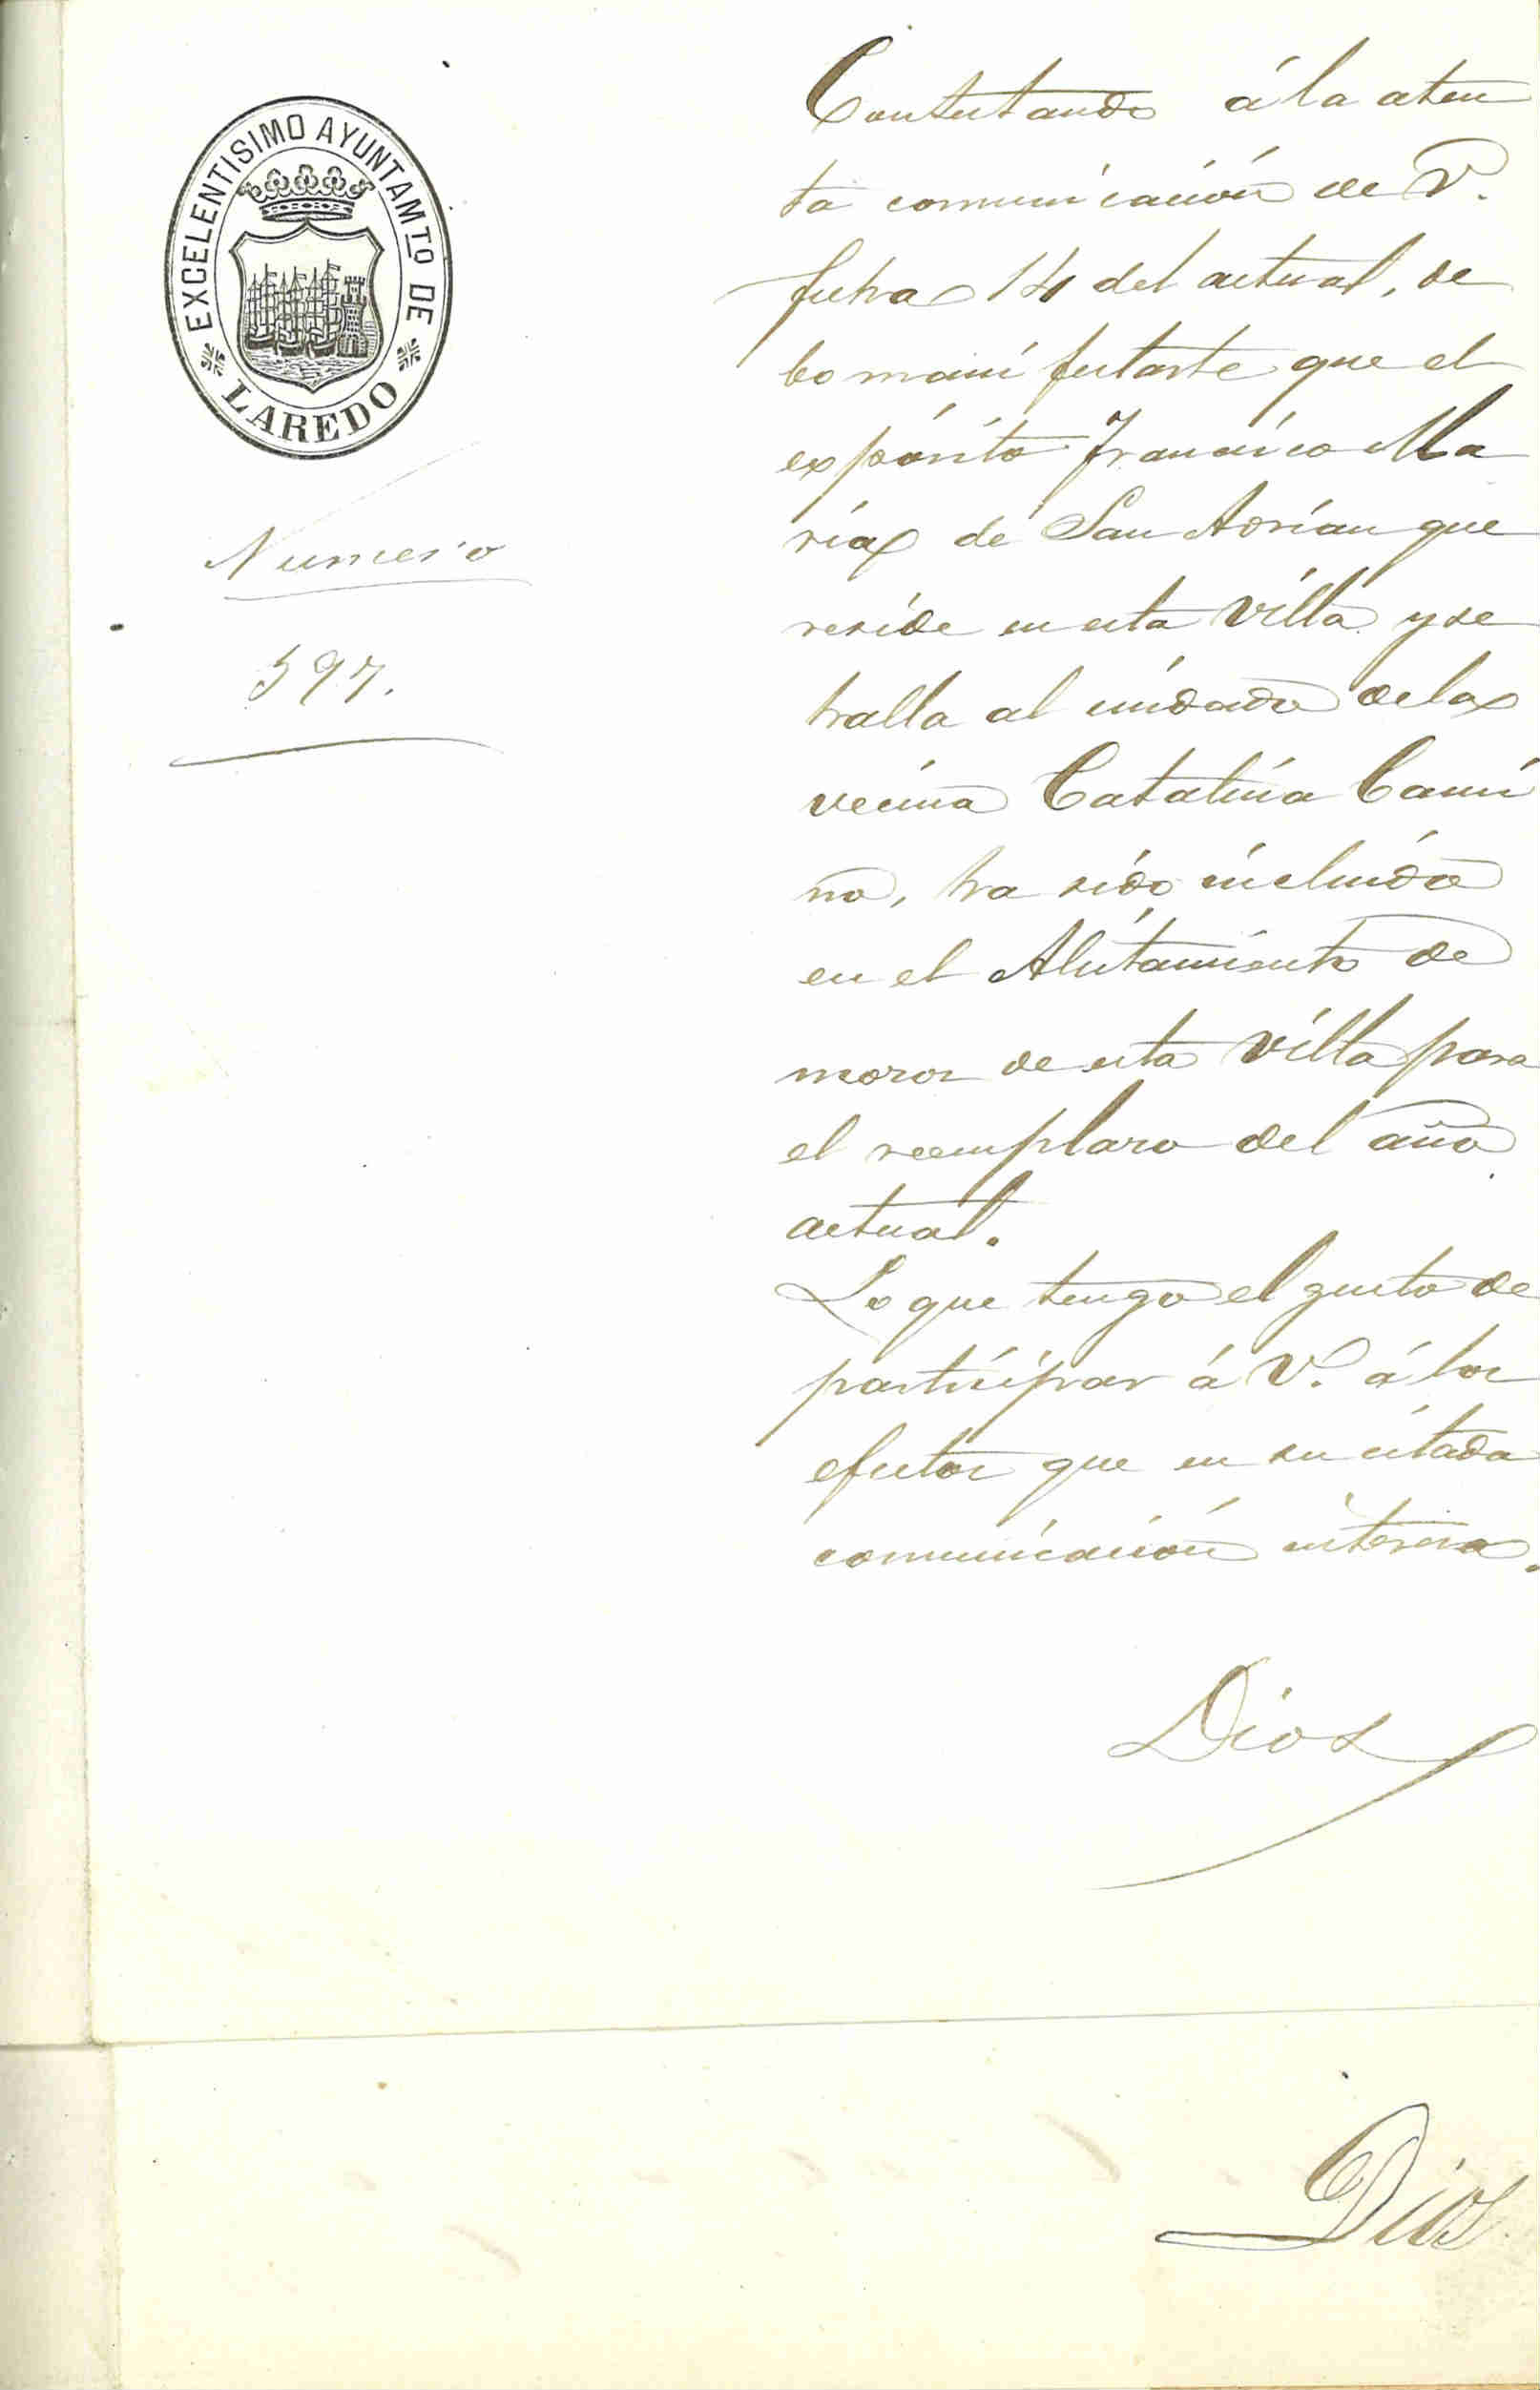 EXCELENTISIMO AYUNTAMTO DE
LAREDO
Numero
597.
Contestando á la aten
ta comunicación de V.
fecha 14 del actual, de
bo manifestarle que el
expósito Francisco Ma
ría de San Adrían que
reside en esta Villa y se
halla al cuidado de la
vecina Catalina Cami
no, ha sido incluido
en el Alistamiento de
mozos de esta Villa para
el reemplazo del año
actual.
Lo que tengo el gusto de
participar á V. á los
efectos que en su citada
comunicación interesa.
Dios
Dios